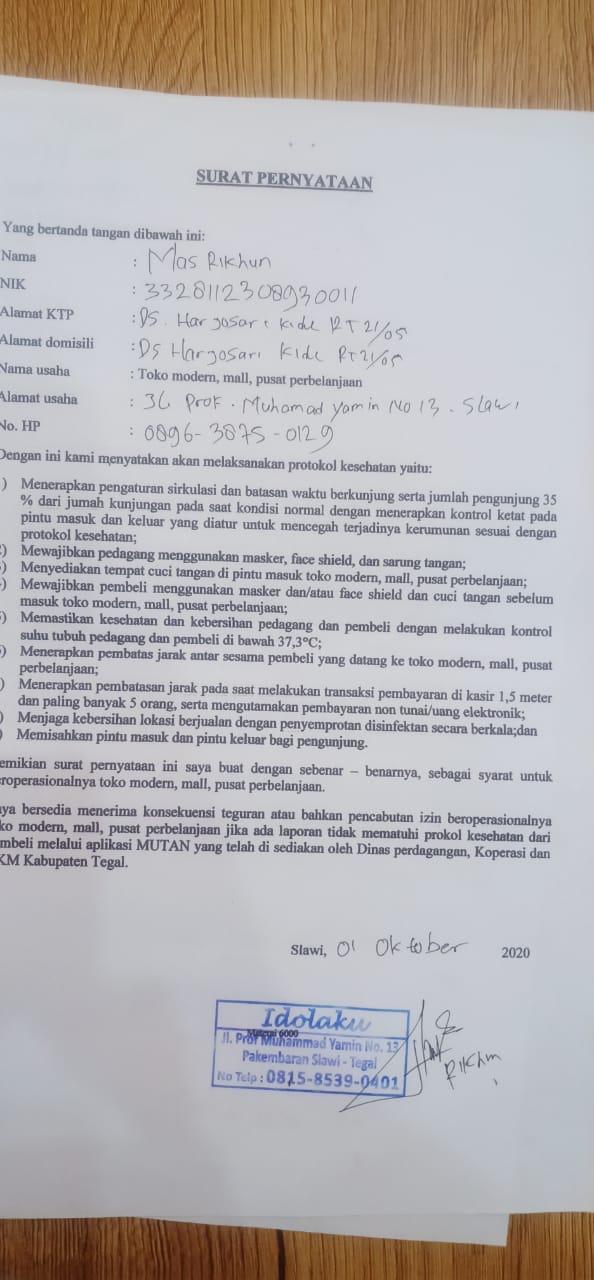 SURAT PERNYATAAN
Yang bertanda tangan dibawah ini:
Nama : Mas Rikhun
NIK : 3328112308930011
Alamat KTP : DS. Hargosari Kidc RT 21/05
Alamat domisili : DS Hargosari Kidc RT 21/05
Nama usaha : Toko modern, mall, pusat perbelanjaan
Alamat usaha : Prof. Muhamad yamin No 13. Slawi
No. HP : 0896-3875-0129
Dengan ini kami menyatakan akan melaksanakan protokol kesehatan yaitu:
) Menerapkan pengaturan sirkulasi dan batasan waktu berkunjung serta jumlah pengunjung 35
% dari jumah kunjungan pada saat kondisi normal dengan menerapkan kontrol ketat pada
pintu masuk dan keluar yang diatur untuk mencegah terjadinya kerumunan sesuai dengan
protokol kesehatan;
) Mewajibkan pedagang menggunakan masker, face shield, dan sarung tangan;
) Menyediakan tempat cuci tangan di pintu masuk toko modern, mall, pusat perbelanjaan;
) Mewajibkan pembeli menggunakan masker dan/atau face shield dan cuci tangan sebelum
masuk toko modern, mall, pusat perbelanjaan;
) Memastikan kesehatan dan kebersihan pedagang dan pembeli dengan melakukan kontrol
suhu tubuh pedagang dan pembeli di bawah 37,3°C;
) Menerapkan pembatas jarak antar sesama pembeli yang datang ke toko modern, mall, pusat
perbelanjaan;
) Menerapkan pembatasan jarak pada saat melakukan transaksi pembayaran di kasir 1,5 meter
dan paling banyak 5 orang, serta mengutamakan pembayaran non tunai/uang elektronik;
) Menjaga kebersihan lokasi berjualan dengan penyemprotan disinfektan secara berkala;dan
) Memisahkan pintu masuk dan pintu keluar bagi pengunjung.
emikian surat pernyataan ini saya buat dengan sebenar – benarnya, sebagai syarat untuk
eroperasionalnya toko modern, mall, pusat perbelanjaan.
ya bersedia menerima konsekuensi teguran atau bahkan pencabutan izin beroperasionalnya
ko modern, mall, pusat perbelanjaan jika ada laporan tidak mematuhi prokol kesehatan dari
mbeli melalui aplikasi MUTAN yang telah di sediakan oleh Dinas perdagangan, Koperasi dan
KM Kabupaten Tegal.
Slawi, 01 Oktober 2020
Idolaku
Materai 6000
Jl. Prof Muhammad Yamin No. 13
Pakembaran Slawi - Tegal
No Telp : 0815-8539-0401
Rikhun